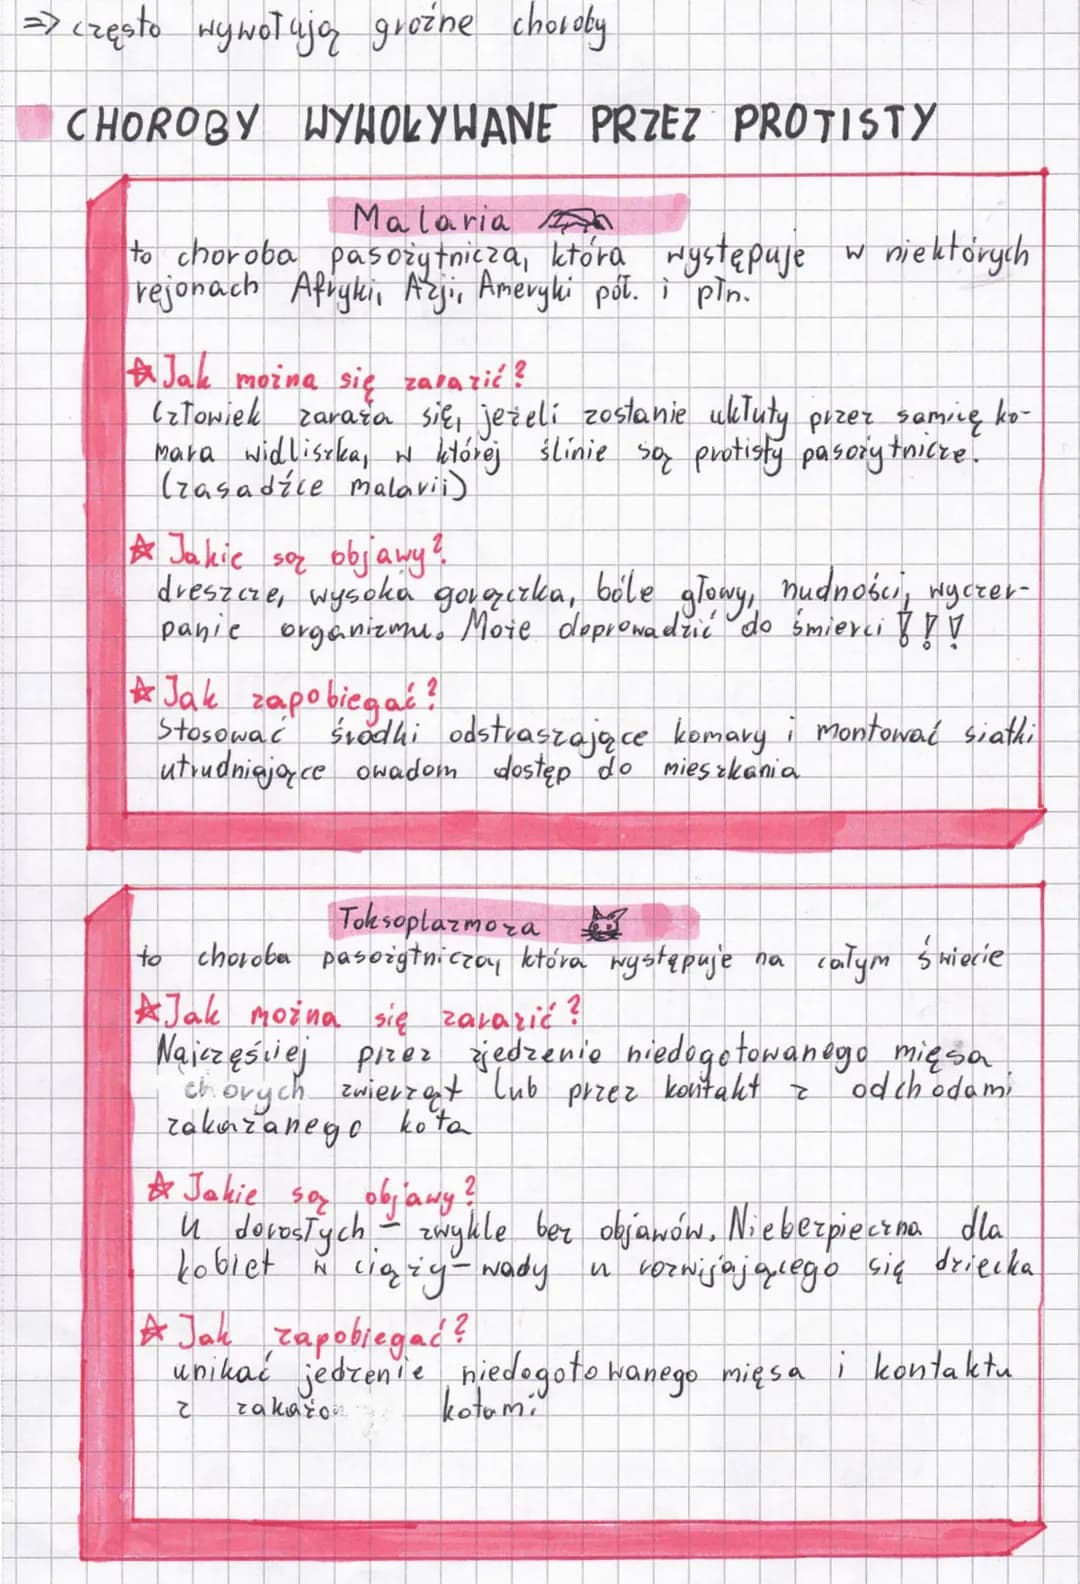 => często wywołują groźne choroby
CHOROBY WYWOŁYWANE PRZEZ PROTISTY
Malaria
to choroba pasożytnicza, która występuje w niektórych
rejonach Afryki, Azji, Ameryki poł. i płn.
☆ Jak można się zarazić?
Człowiek zaraża się, jeżeli zostanie ukłuty przez samicę ko-
mara widliszka, w której ślinie są protisty pasożytnicze.
(zasadźce malarii)
☆ Jakie są objawy?
dreszcze, wysoka gorączka, bóle głowy, nudności, wyczer-
panie organizmu. Może doprowadzić do śmierci!!!
☆ Jak zapobiegać?
Stosować środki odstraszające komary i montować siatki
utrudniające owadom dostęp do mieszkania
Toksoplazmoza
to choroba pasożytnicza, która występuje na całym świecie
☆ Jak można się zarazić?
Najczęściej przez zjedzenie niedogotowanego mięsa
chorych zwierząt lub przez kontakt z odchodami
zakażanego kota
☆ Jakie są objawy?
U dorosłych - zwykle bez objawów. Niebezpieczna dla
kobiet w ciąży - wady u rozwijającego się dziecka
☆ Jak zapobiegać?
unikać jedzenie niedogotowanego mięsa i kontaktu
z kotami